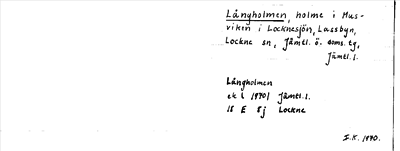 Långholmen, holme i Mus-
viken i Locknesjön, Lassbyn,
Lockne sn, Jämtl. ö. doms. tg,
Jämtl. l.
Långholmen
ek L 1970 / Jämtl. l.
18 E 8j Lockne
I.K. 1970.